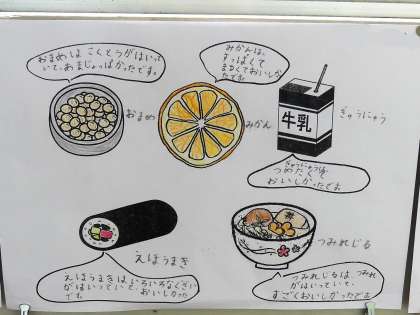 おまめは こんとうがはいって
いて、あまじょっぱかったです。
おまめ
みかんは、
すっぱくて
まるくておいしか
たです
みかん
牛乳
ぎゅうにゅう
ぎゅうにゅうは
つめたくて
おいしかったです
えほうまき
えほうまきは、いろいろなくざい
がはいっていて、おいしかった
です。
つみれじる
つみれじるは、つみれ
がはいっていて、
すごくおいしかったです